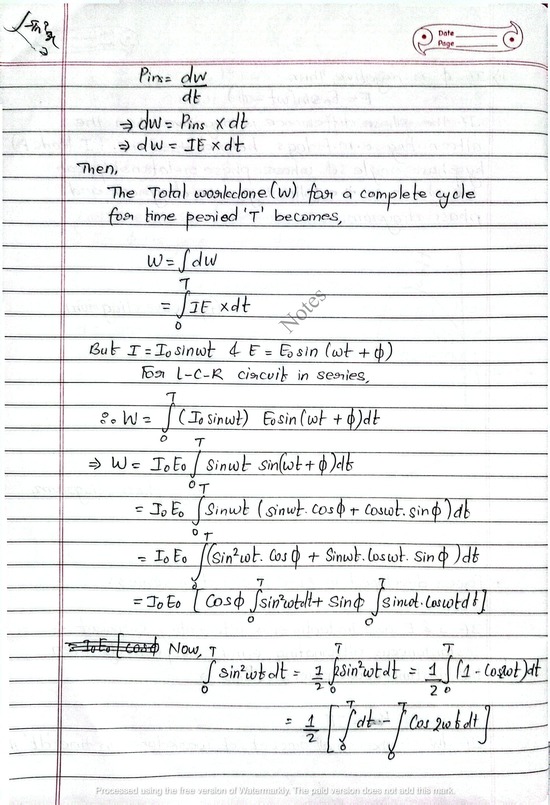 Date
Page
Pins = dw/dt
⇒ dw = Pins x dt
⇒ dw = IE x dt
Then,
The Total workdone (W) for a complete cycle
for time period 'T' becomes,
W = ∫dw
= ∫₀ᵀ IE x dt
Notes
But I = I₀ sinwt & E = E₀ sin (wt + ϕ)
For L-C-R circuit in series,
∴ W = ∫₀ᵀ (I₀ sinwt) E₀ sin (wt + ϕ) dt
⇒ W = I₀E₀ ∫₀ᵀ sinwt sin(wt + ϕ)dt
= I₀E₀ ∫₀ᵀ Sinwt (sinwt. cosϕ + coswt. sinϕ) dt
= I₀E₀ ∫₀ᵀ (sin²wt. Cosϕ + Sinwt. Coswt. Sinϕ) dt
= I₀E₀ [Cosϕ ∫₀ᵀ sin²wtdt + Sinϕ ∫₀ᵀ sinwt. Coswtdt]
= I₀E₀ [cosϕ Now,
∫₀ᵀ sin²wtdt = 1/2 ∫₀ᵀ 2Sin²wtdt = 1/2 ∫₀ᵀ (1 - Cos2wt)dt
= 1/2 [∫₀ᵀ dt - ∫₀ᵀ Cos 2wtdt]
Processed using the free version of Watermarkly. The paid version does not add this mark.